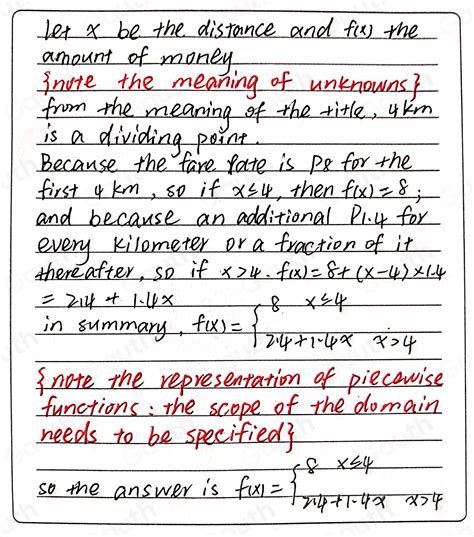 let x be the distance and f(x) the
amount of money
{note the meaning of unknowns}
from the meaning of the title, 4km
is a dividing point.
Because the fare rate is P8 for the
first 4 km, so if x≤4, then f(x)=8;
and because an additional P1.4 for
every kilometer or a fraction of it
thereafter, so if x>4. f(x)=8+(x-4)×1.4
=2.4+1.4x
in summary, f(x)={8 x≤4
2.4+1.4x x>4
{note the representation of piecewise
functions: the scope of the domain
needs to be specified}
so the answer is f(x)={8 x≤4
2.4+1.4x x>4